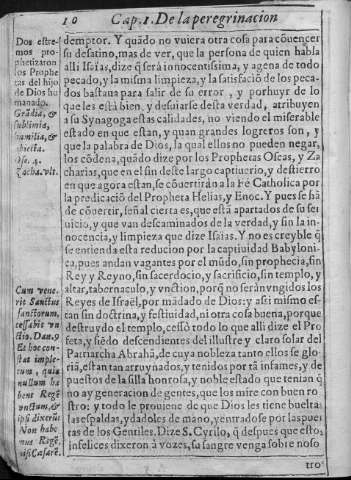 10 Cap. I. De la peregrinacion
Dos estre-
mos pro-
phetizaron
los Prophe
tas del hijo
de Dios hu
manado.
Grãdia, &
sublimia,
humilia, &
abiecta.
Ose. 4.
Zacha. vlt.
Cum vene-
rit Sanctus
sanctorum,
cessabit vn
ctio. Dan. 9
Et hoc con-
stat imple-
tum, quia
nullum ha
bent Regẽ
vnctum, &
ipsi dixerũt
Non habe
mus Regẽ,
nisi Cæsarẽ.
demptor. Y quãdo no vuiera otra cosa para cõuencer
su desatino, mas de ver, que la persona de quien habla
alli Isaias, dize q̃ será innocentissima, y agena de todo
pecado, y la misma limpieza, y la satisfaciõ de los peca-
dos bastaua para salir de su error, y por huyr de lo
que les està bien, y desuiarse desta verdad, atribuyen
a su Synagoga estas calidades, no viendo el miserable
estado en que estan, y quan grandes logreros son, y
que la palabra de Dios, la qual ellos no pueden negar,
los cõdena, quãdo dize por los Prophetas Oseas, y Za
charias, que en el fin deste largo captiuerio, y destierro
en que agora estan, se cõuertirán a la Fè Catholica por
la predicaciõ del Propheta Helias, y Enoc. Y pues se hã
de cõuertir, señal cierta es, que està apartados de su ser
uicio, y que van descaminados de la verdad, y sin la in-
nocencia, y limpieza que dize Isaias. Y no es creyble q̃
se entienda esta reducion por la captiuidad Babyloni-
ca, pues andan vagantes por el mũdo, sin prophecia, sin
Rey y Reyno, sin sacerdocio, y sacrificio, sin templo, y
altar, tabernaculo, y vnction, porq̃ no serãn vngidos los
Reyes de Israèl, por mãdado de Dios: y asi mismo es-
tan sin doctrina, y festiuidad, ni otra cosa buena, porque
destruydo el templo, cessò todo lo que alli dize el Pro
feta, y siẽdo descendientes del illustre y claro solar del
Patriarcha Abrahã, de cuya nobleza tanto ellos se glo-
riã, estan tan arruynados, y tenidos por tã infames, y de
puestos de la silla honrosa, y noble estado que tenian q̃
no ay generacion de gentes, que los mire con buen ro-
stro: y todo le prouiene de que Dios les tiene bueltas
las espaldas, y dadoles de mano, y entradose por las puer
tas de los Gentiles. Dize S. Cyrilo, q̃ despues que estos
infelices dixeron à vozes, su sangre venga sobre noso